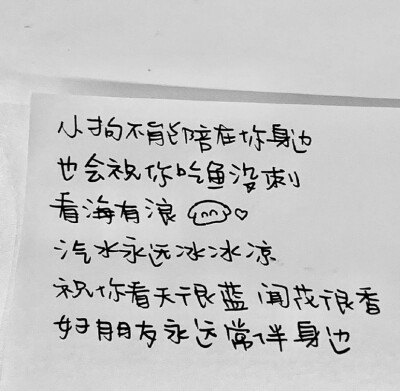 小狗不能陪在你身边
也会祝你吃鱼没刺
看海有浪
汽水永远冰冰凉
祝你看天很蓝 闻花很香
好朋友永远常伴身边